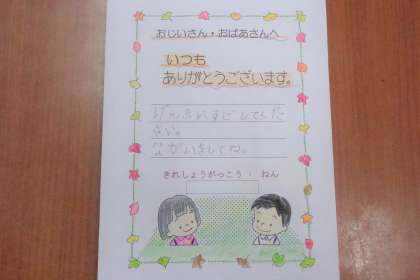 おじいさん・おばあさんへ
いつも
ありがとうございます。
げんきにすごしてくだ
さい。
ながいきしてね。
きれしょうがっこう 1 ねん